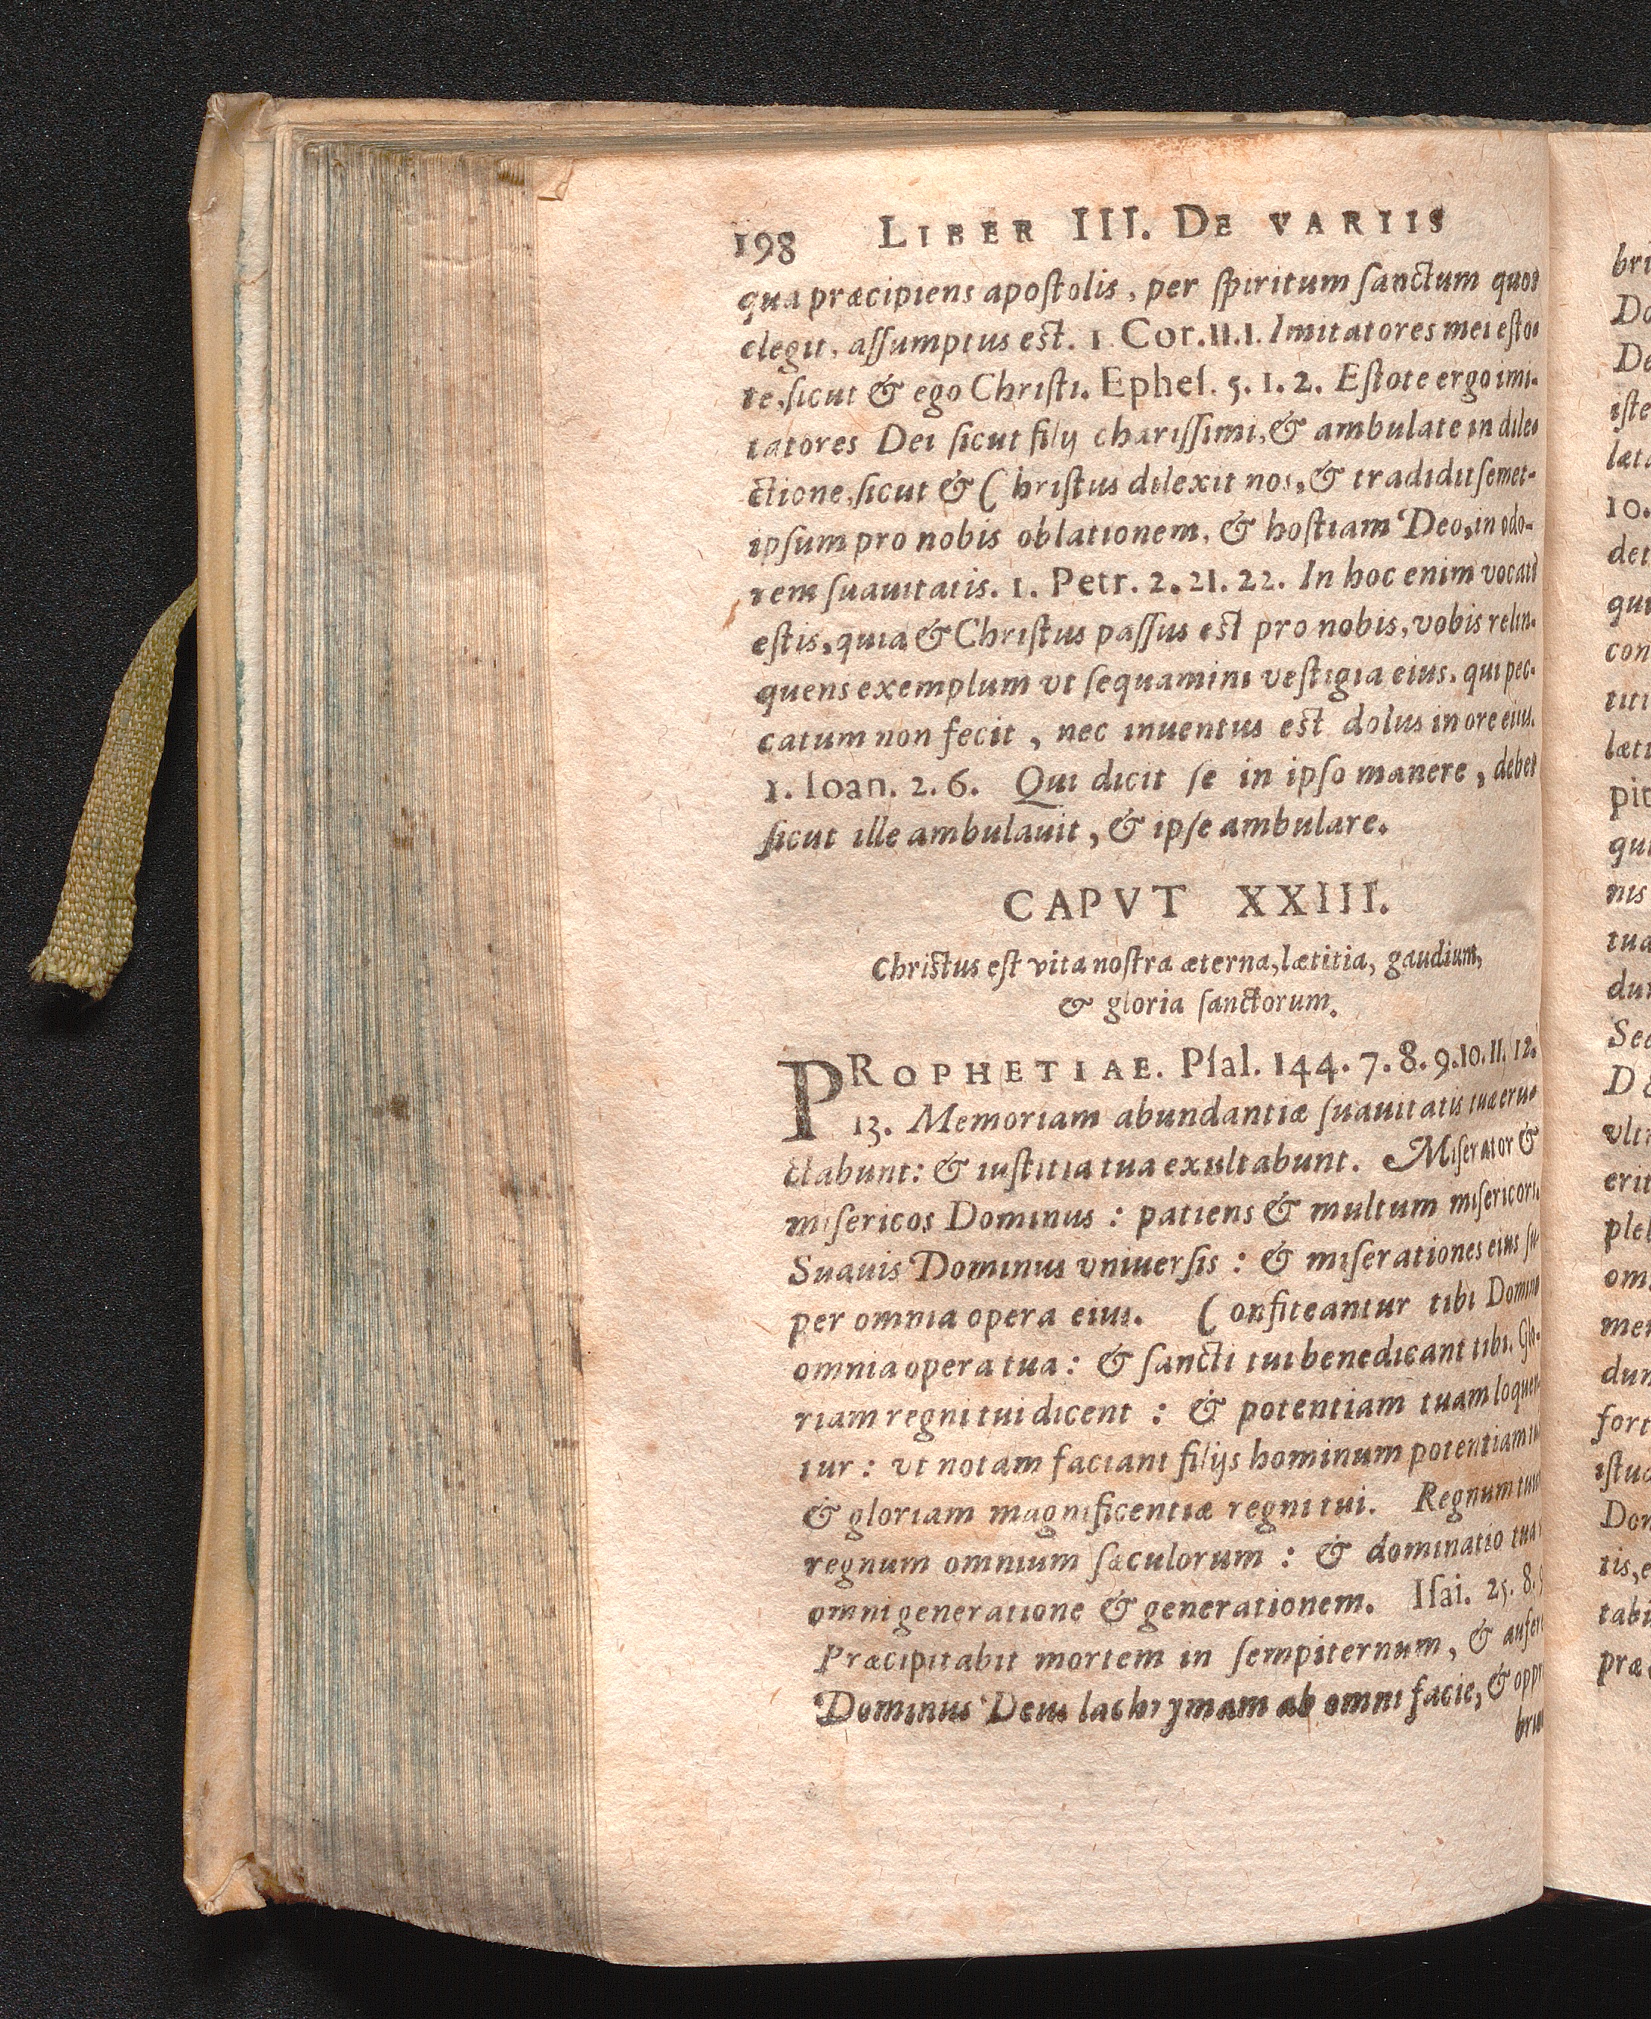 198 LIBER III. DE VARIIS
qua præcipiens apoſtolis, per ſpiritum ſanctum quos
elegit, aſſumptus est. 1. Cor. 11.1. Imitatores mei eſto-
te, ſicut & ego Chriſti. Epheſ. 5. 1. 2. Eſtote ergo imi-
tatores Dei ſicut filij chariſſimi, & ambulate in dile-
ctione, ſicut & Chriſtus dilexit nos, & tradidit ſemet-
ipſum pro nobis oblationem, & hoſtiam Deo, in odo-
rem ſuauitatis. 1. Petr. 2. 21. 22. In hoc enim vocati
eſtis, quia & Chriſtus paſſus est pro nobis, vobis relin-
quens exemplum vt ſequamini veſtigia eius. qui pec-
catum non fecit, nec inuentus est dolus in ore eius.
1. Ioan. 2. 6. Qui dicit ſe in ipſo manere, debet
ſicut ille ambulauit, & ipſe ambulare.
CAPVT XXIII.
Chriſtus eſt vita noſtra æterna, lætitia, gaudium,
& gloria ſanctorum.
PROPHETIAE. Pſal. 144. 7. 8. 9. 10. 11. 12.
13. Memoriam abundantiæ ſuauitatis tuæ eru-
ctabunt: & iuſtitia tua exultabunt. Miſerator &
miſericos Dominus: patiens & multum miſericors.
Suauis Dominus vniuerſis: & miſerationes eius ſu-
per omnia opera eius. Confiteantur tibi Domine
omnia opera tua: & ſancti tui benedicant tibi. Glo-
riam regni tui dicent: & potentiam tuam loquen-
tur: vt notam faciant filijs hominum potentiam tuã
& gloriam magnificentiæ regni tui. Regnum tuum
regnum omnium ſæculorum: & dominatio tua
omni generatione & generationem. Iſai. 25. 8.
Præcipitabit mortem in ſempiternum, & aufert
Dominus Deus lachrymam ab omni facie, & oppro
briu

bri
Do
De
iſte
læta
10.
det
qui
con
titi
læti
pit
qui
nis
tua
dun
Sed
D
vlt
erit
pleb
om
men
dun
fort
iſtud
Dom
tis, e
tabi
præ